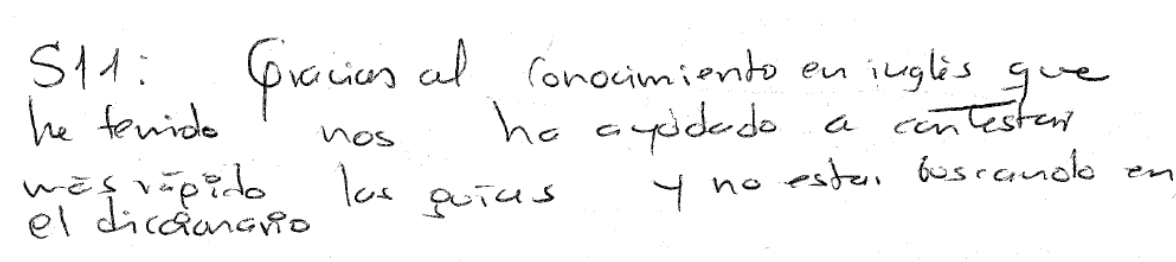 S11: Gracias al conocimiento en inglés que
he tenido nos ha ayudado a contestar
más rápido las guías y no estar buscando en
el diccionario